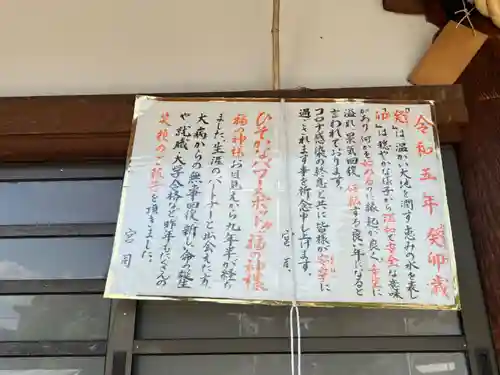 令和五年 癸卯歳
『癸』は温かい大地を潤す恵みの水を表し
『卯』は穏やかな様子から温和で安全な意味
があり何かを始めるのに縁起が良く希望に
溢れ景気回復、好転する良い年になると
言われております。
コロナ感染の終息と共に皆様が安寧に
過ごされます事を祈念申し上げます。
宮司
ひそかなパワースポット『福の神様』
福の神様お迎えから九年半が経ち
ました生涯のパートナーと出会えた方、
大病からの無事回復、新しい命の誕生
や就職、大学合格など昨年もたくさんの
笑顔のご報告を頂きました。
宮司